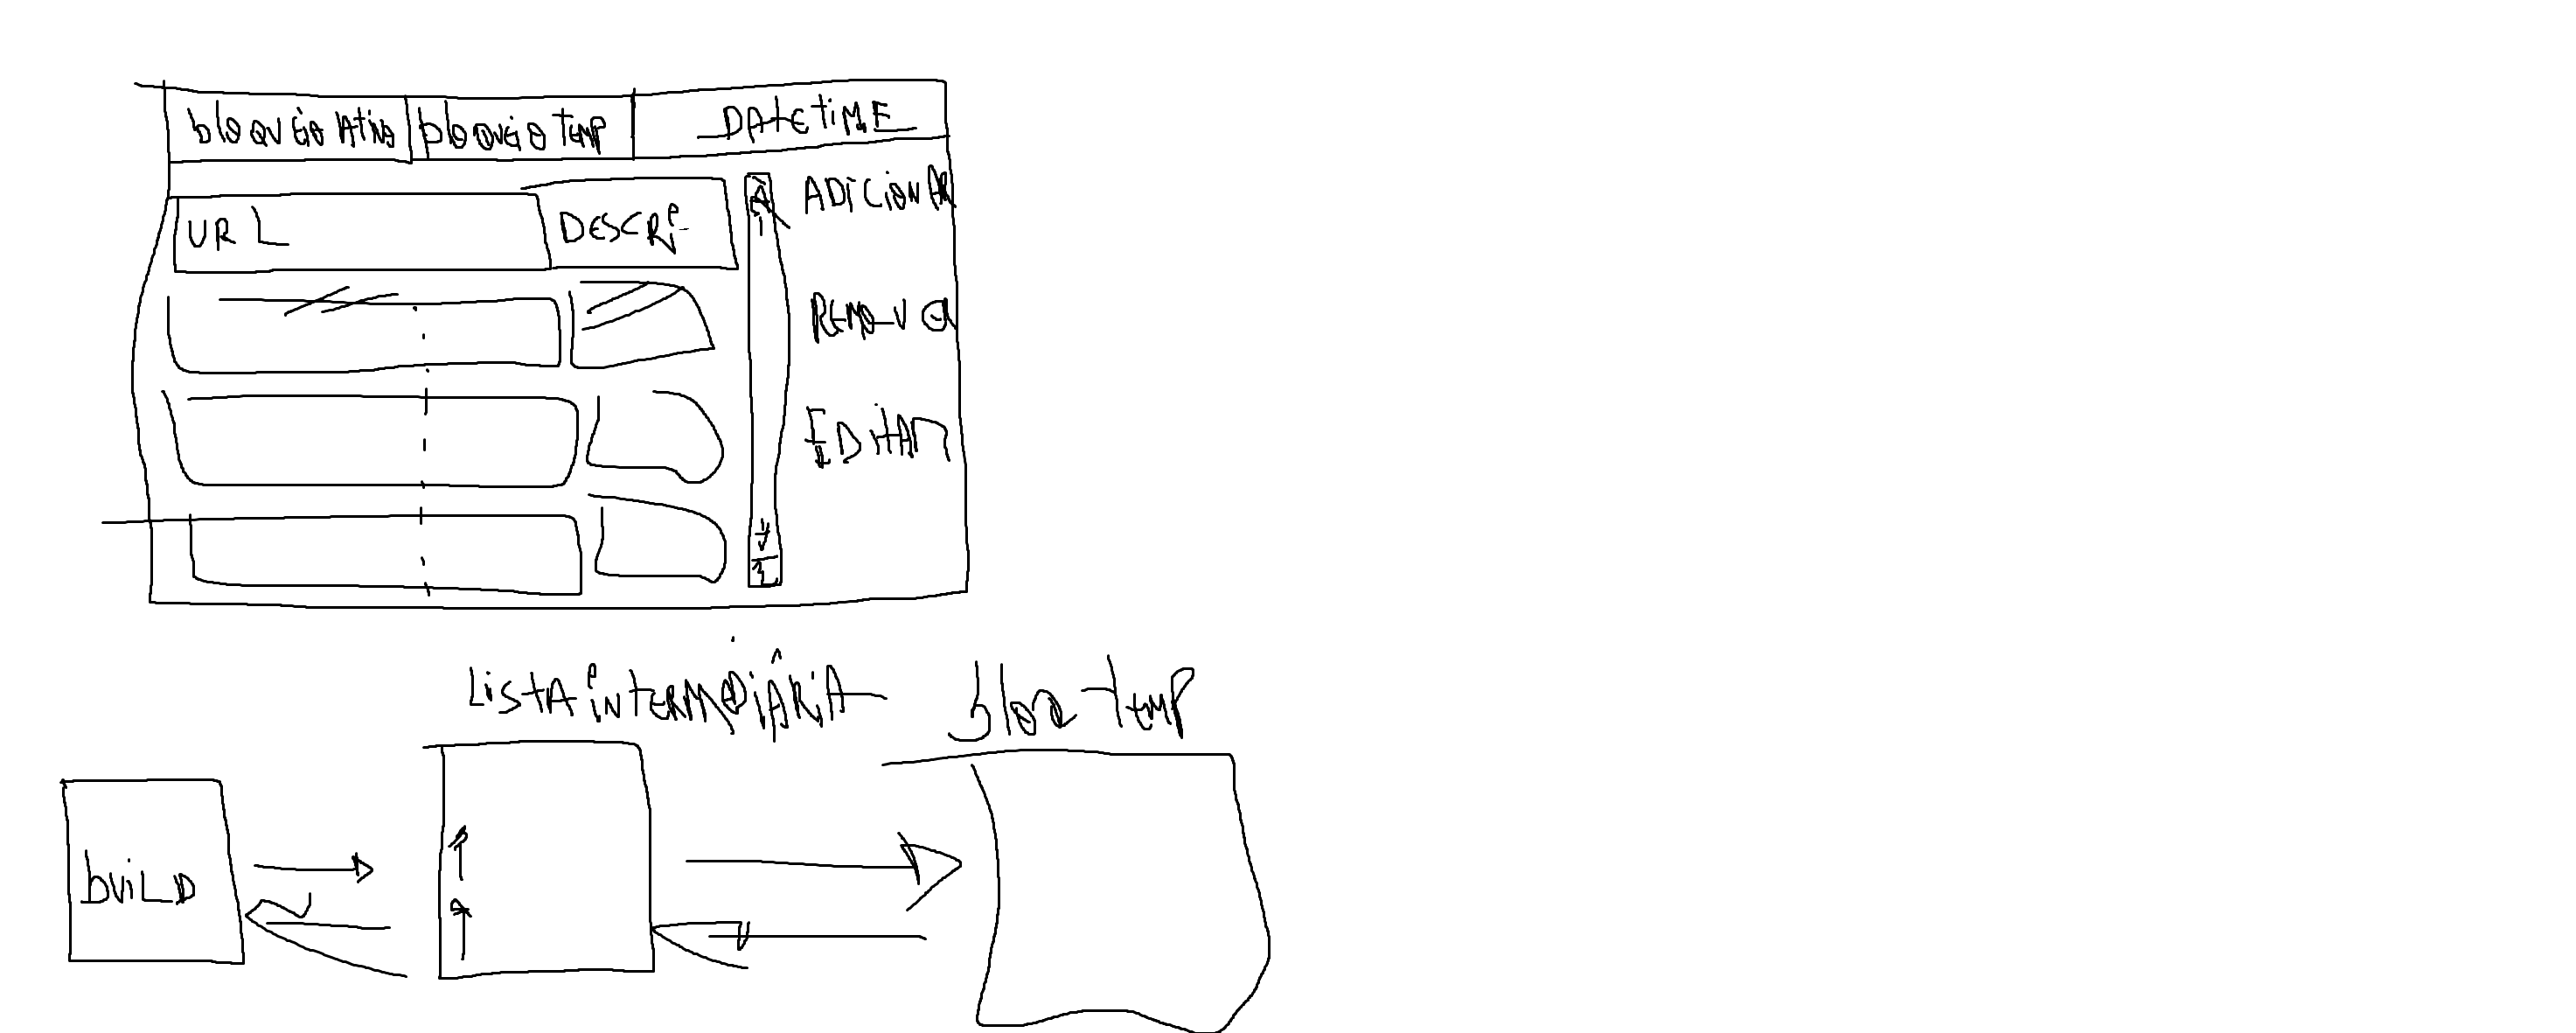 bloqueio Ativo bloqueio TEMP DATETIME
URL DESCRI- ADICIONAR
REMOVER
EDITAR
LISTA INTERMEDIÁRIA bloq temp
buiLD